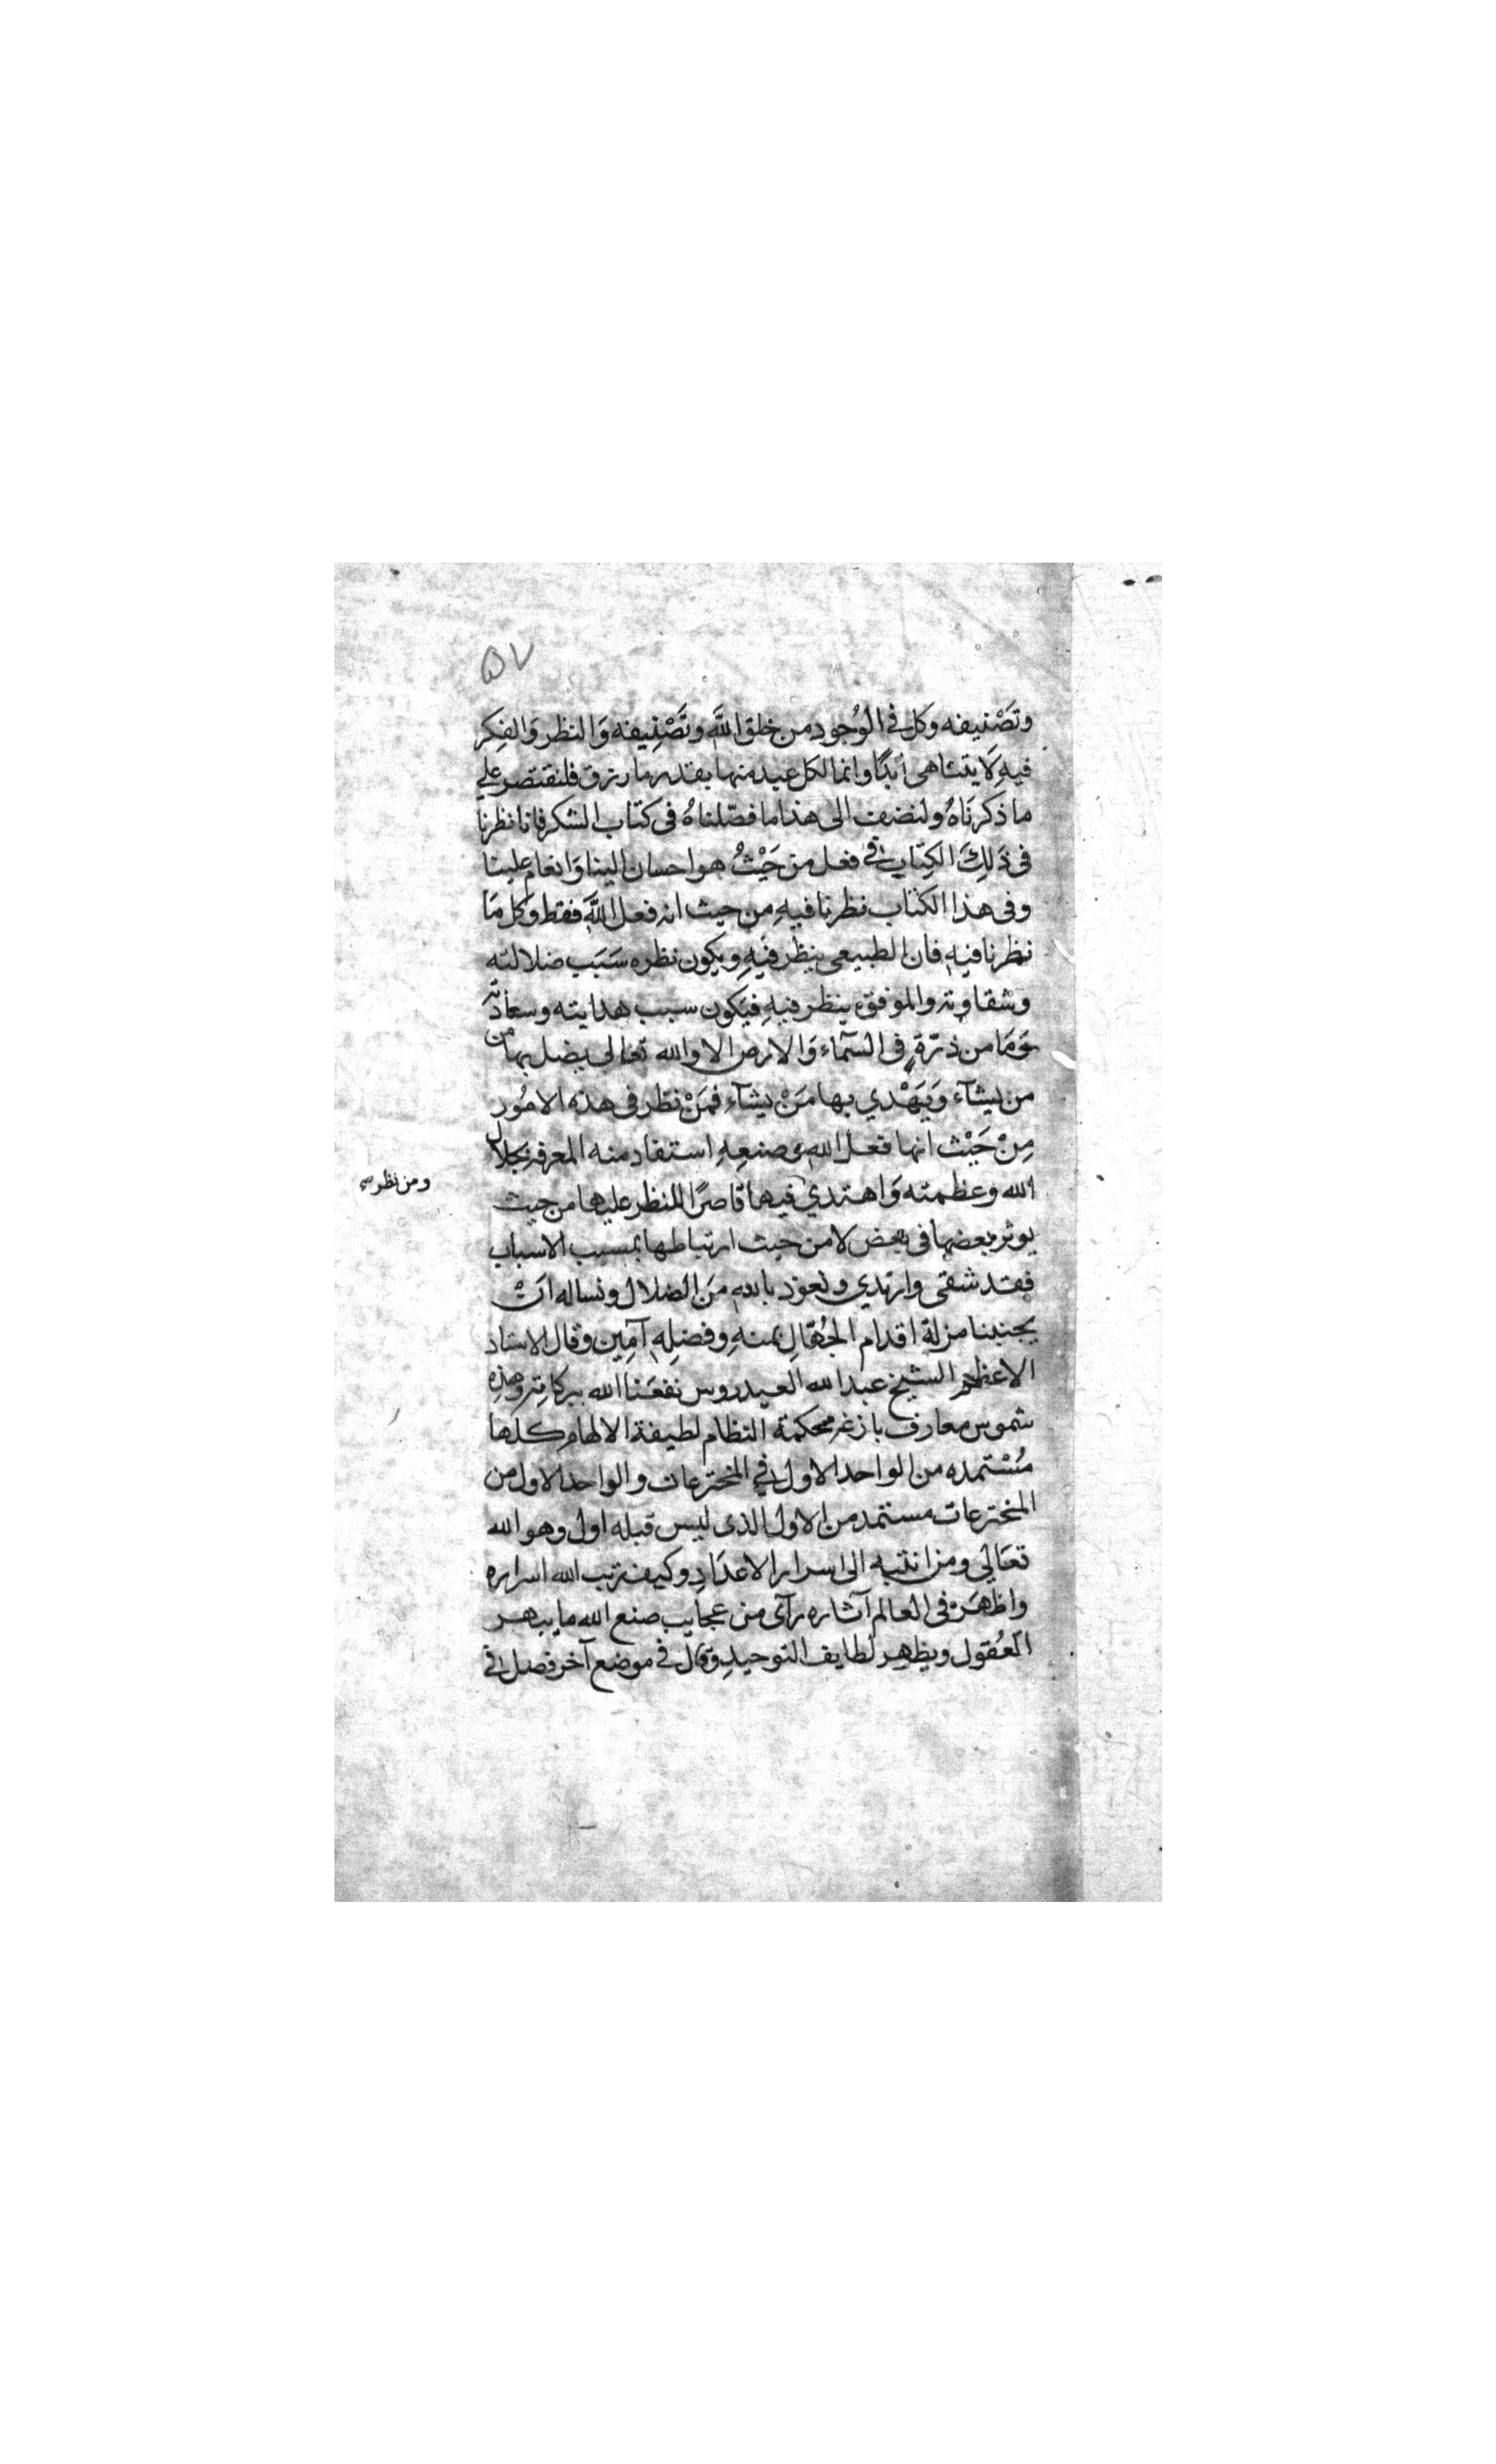 ٥٧
وتَصْنيفه وكل في الوُجود من خلق اللَّه وتَصْنِيفه وَالنظر وَالفِكر
فيهِ لَا يتناهى ابَدًا وانما لكل عبد منها بقدر ما رزق فلنقتصر علي
ما ذكرنَاهُ ولنضف الى هذا ما فصّلناهُ في كتاب الشكر فانا نظرنا
في ذَلِكَ الكِتابِ في فعل من حَيْثُ هو احسان الينا وَانعام علينا
وفي هذا الكتاب نظرنا فيهِ من حيث انه فعل اللَّه فقط وكل مَا
نظرنا فيهِ فان الطبيعي ينظر فيهِ ويكون نظره سَبَب ضلالته
وشقاوته والموفق ينظر فيهِ فيَكون سبب هدايته وسعادته
وَمَا من ذرّةٍ في السَّمآء وَالارض الا والله تعالى يضل بها من
من يشآء وَيَهْدي بها مَنْ يشآء فمَنْ نظر في هذه الامُور
مِنْ حَيْث انها فعل الله وصنعِهِ استفاد منه المعرفه بجلال
الله وعظمته وَاهتدي فيها قاصرًا للنظر عليها من حيث
ومن نظر
يوثر بعضها في بعض لا من حيث ارتباطها بمسبب الاسباب
فقد شقى وارتدي ونعوذ بالله مِنَ الضلال ونساله انْ
يجنبنا مزلة اقدام الجُهّالِ بمنهِ وفضلِهِ آمِين وقال الاستاد
الاعظم الشيخ عبد الله العيدروس نفعَنا الله ببركاته وهذهِ
شموس معارف بازغه محكمة النظام لطيفة الالهام كلها
مُسْتمده من الواحد الاول في المخترعات والواحد الاول من
المخترعات مستمد من الاول الذى ليس قبله اول وهو الله
تعَالي ومن انتبه الى اسرار الاعدَادِ وكيف رتب الله اسراره
واظهَرَ في العالم آثاره رآى من عجايب صنع الله ما يبهر
العُقول ويظهر لطايف التوحيدِ وقال في موضع آخر فصل في